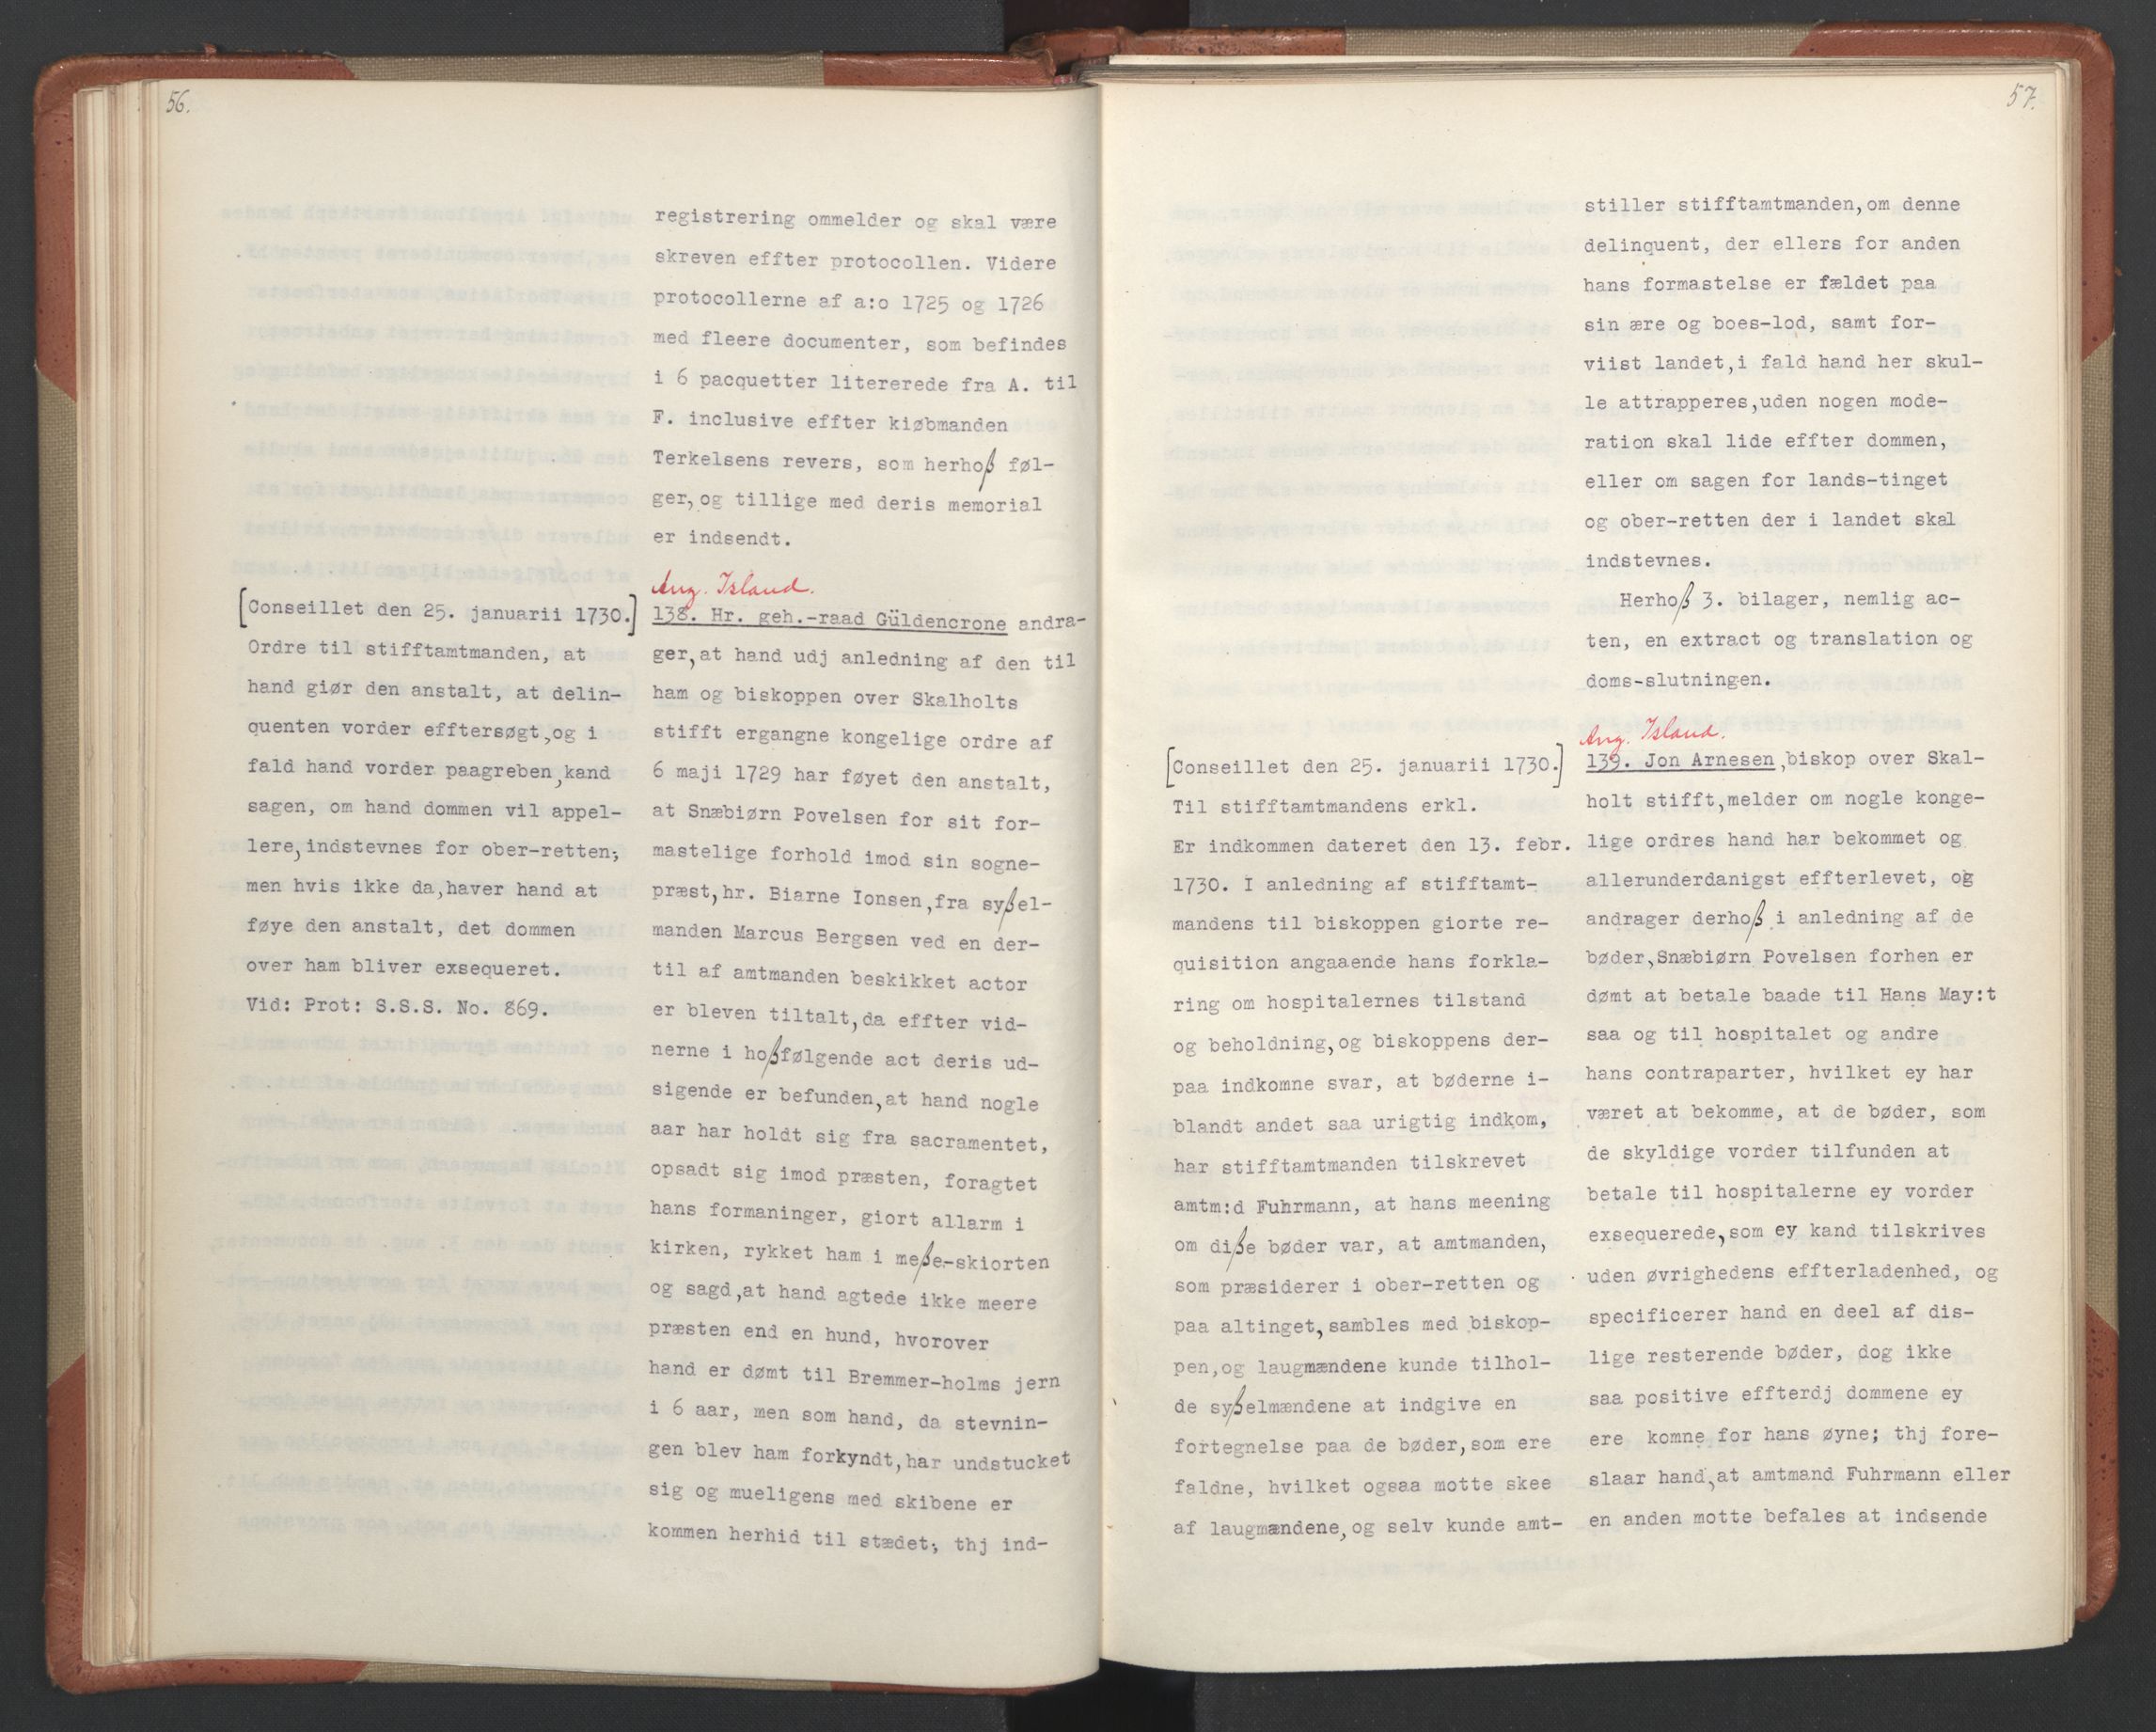 56.
registrering ommelder og skal være
skreven effter protocollen. Videre
protocollerne af a:o 1725 og 1726
med fleere documenter, som befindes
i 6 pacquetter litererede fra A. til
F. inclusive effter kiøbmanden
Terkelsens revers, som herhoß føl-
ger, og tillige med deris memorial
er indsendt.
[Conseillet den 25. januarii 1730.]
Ordre til stifftamtmanden, at
hand giør den anstalt, at delin-
quenten vorder efftersøgt, og i
fald hand vorder paagreben, kand
sagen, om hand dommen vil appel-
lere, indstevnes for ober-retten;
men hvis ikke da, haver hand at
føye den anstalt, det dommen
over ham bliver exsequeret.
Vid: Prot: S.S.S. No. 869.
Ang. Island.
138. Hr. geh.-raad Güldencrone andra-
ger, at hand udj anledning af den til
ham og biskoppen over Skalholts
stifft ergangne kongelige ordre af
6 maji 1729 har føyet den anstalt,
at Snæbiørn Povelsen for sit for-
mastelige forhold imod sin sogne-
præst, hr. Biarne Ionsen, fra syßel-
manden Marcus Bergsen ved en der-
til af amtmanden beskikket actor
er bleven tiltalt, da effter vid-
nerne i hoßfølgende act deris ud-
sigende er befunden, at hand nogle
aar har holdt sig fra sacramentet,
opsadt sig imod præsten, foragtet
hans formaninger, giort allarm i
kirken, rykket ham i meße-skiorten
og sagd, at hand agtede ikke meere
præsten end en hund, hvorover
hand er dømt til Bremmer-holms jern
i 6 aar, men som hand, da stevnin-
gen blev ham forkyndt, har undstucket
sig og mueligens med skibene er
kommen herhid til stædet; thj ind-
57.
stiller stifftamtmanden, om denne
delinquent, der ellers for anden
hans formastelse er fældet paa
sin ære og boes-lod, samt for-
viist landet, i fald hand her skul-
le attrapperes, uden nogen mode-
ration skal lide effter dommen,
eller om sagen for lands-tinget
og ober-retten der i landet skal
indstevnes.
Herhoß 3. bilager, nemlig ac-
ten, en extract og translation og
doms-slutningen.
[Conseillet den 25. januarii 1730.]
Til stifftamtmandens erkl.
Er indkommen dateret den 13. febr.
1730. I anledning af stifftamt-
mandens til biskoppen giorte re-
quisition angaaende hans forkla-
ring om hospitalernes tilstand
og beholdning, og biskoppens der-
paa indkomne svar, at bøderne i-
blandt andet saa urigtig indkom,
har stifftamtmanden tilskrevet
amtm:d Fuhrmann, at hans meening
om diße bøder var, at amtmanden,
som præsiderer i ober-retten og
paa altinget, sambles med biskop-
pen, og laugmændene kunde tilhol-
de syßelmændene at indgive en
fortegnelse paa de bøder, som ere
faldne, hvilket ogsaa motte skee
af laugmændene, og selv kunde amt-
Ang. Island.
139. Jon Arnesen, biskop over Skal-
holt stifft, melder om nogle konge-
lige ordres hand har bekommet og
allerunderdanigst effterlevet, og
andrager derhoß i anledning af de
bøder, Snæbiørn Povelsen forhen er
dømt at betale baade til Hans May:t
saa og til hospitalet og andre
hans contraparter, hvilket ey har
været at bekomme, at de bøder, som
de skyldige vorder tilfunden at
betale til hospitalerne ey vorder
exsequerede, som ey kand tilskrives
uden øvrighedens effterladenhed, og
specificerer hand en deel af dis-
lige resterende bøder, dog ikke
saa positive effterdj dommene ey
ere komne for hans øyne; thj fore-
slaar hand, at amtmand Fuhrmann eller
en anden motte befales at indsende